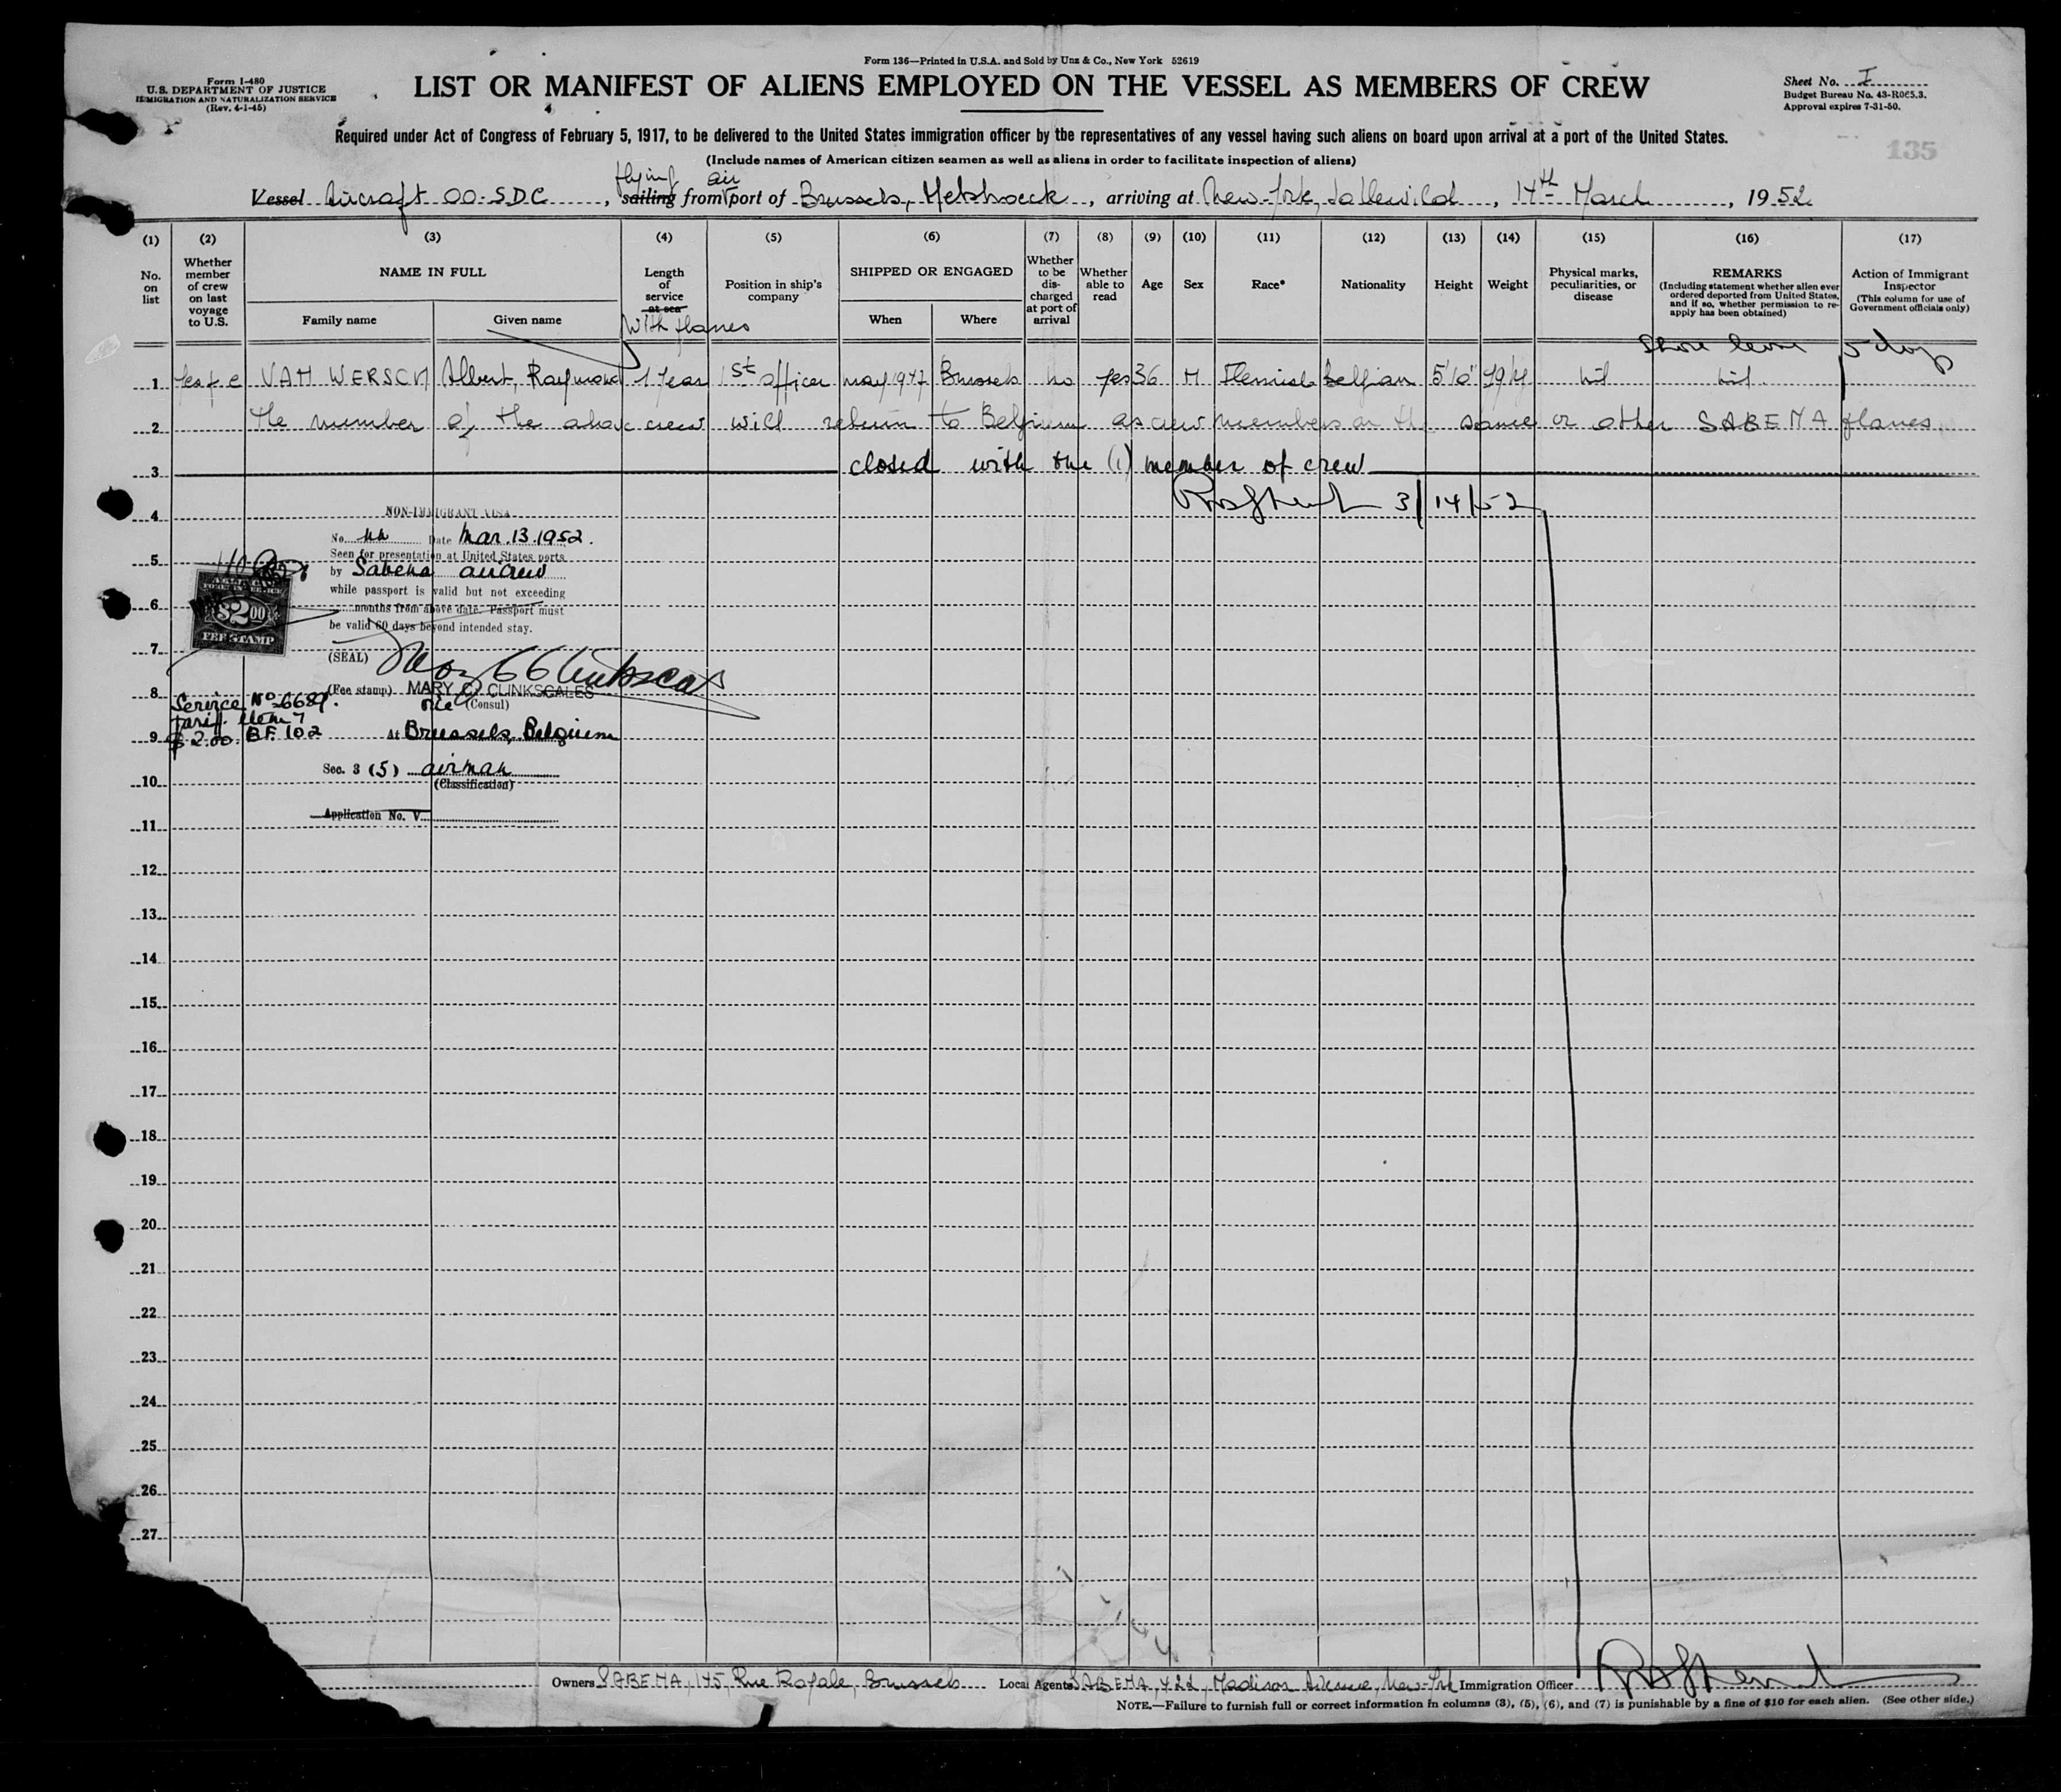 Form 136—Printed in U.S.A. and Sold by Unz & Co., New York 52619
Form I-480
U.S. DEPARTMENT OF JUSTICE
IMMIGRATION AND NATURALIZATION SERVICE
(Rev. 4-1-45)
LIST OR MANIFEST OF ALIENS EMPLOYED ON THE VESSEL AS MEMBERS OF CREW
Sheet No. I
Budget Bureau No. 43-R065.3.
Approval expires 7-31-50.
Required under Act of Congress of February 5, 1917, to be delivered to the United States immigration officer by the representatives of any vessel having such aliens on board upon arrival at a port of the United States.
135
(Include names of American citizen seamen as well as aliens in order to facilitate inspection of aliens)
flying air
Vessel Aircraft OO-SDC, sailing from port of Brussels, Melsbroeck, arriving at New-York, Idlewild, 14th March, 1952
(1) (2) (3) (4) (5) (6) (7) (8) (9) (10) (11) (12) (13) (14) (15) (16) (17)
No. on list
Whether member of crew on last voyage to U.S.
NAME IN FULL
Family name
Given name
Length of service at sea
With planes
Position in ship's company
SHIPPED OR ENGAGED
When
Where
Whether to be discharged at port of arrival
Whether able to read
Age
Sex
Race*
Nationality
Height
Weight
Physical marks, peculiarities, or disease
REMARKS
(Including statement whether alien ever ordered deported from United States, and if so, whether permission to reapply has been obtained)
Action of Immigrant Inspector
(This column for use of Government officials only)
Shore leave 5 days
1 VAN WERSCH Albert, Raymond 1 Year 1st officer may 1947 Brussels no yes 36 M Flemish Belgian 5'10" nil nil
2 the member of the above crew will return to Belgium as crew members on the same or other SABENA planes.
3 closed with the (1) member of crew
3/14/52
4
NON-IMMIGRANT VISA
No. Date Mar. 13. 1952.
5
Seen for presentation at United States ports
by Sabena aircrew
while passport is valid but not exceeding
6
months from above date. Passport must
be valid 60 days beyond intended stay.
$2.00
FEE STAMP
7
(SEAL)
8
(Fee stamp) MARY C. CLINKSCALES
Vice (Consul)
Service No 6689.
Tariff item 7
9
$2.00. BF. 102
At Brussels, Belgium
Sec. 3 (5) airman
10
(Classification)
Application No. V
11
12
13
14
15
16
17
18
19
20
21
22
23
24
25
26
27
Owners SABENA, 145, Rue Royale, Brussels Local Agents SABENA, 422, Madison Avenue, New-York Immigration Officer
NOTE.—Failure to furnish full or correct information in columns (3), (5), (6), and (7) is punishable by a fine of $10 for each alien. (See other side.)